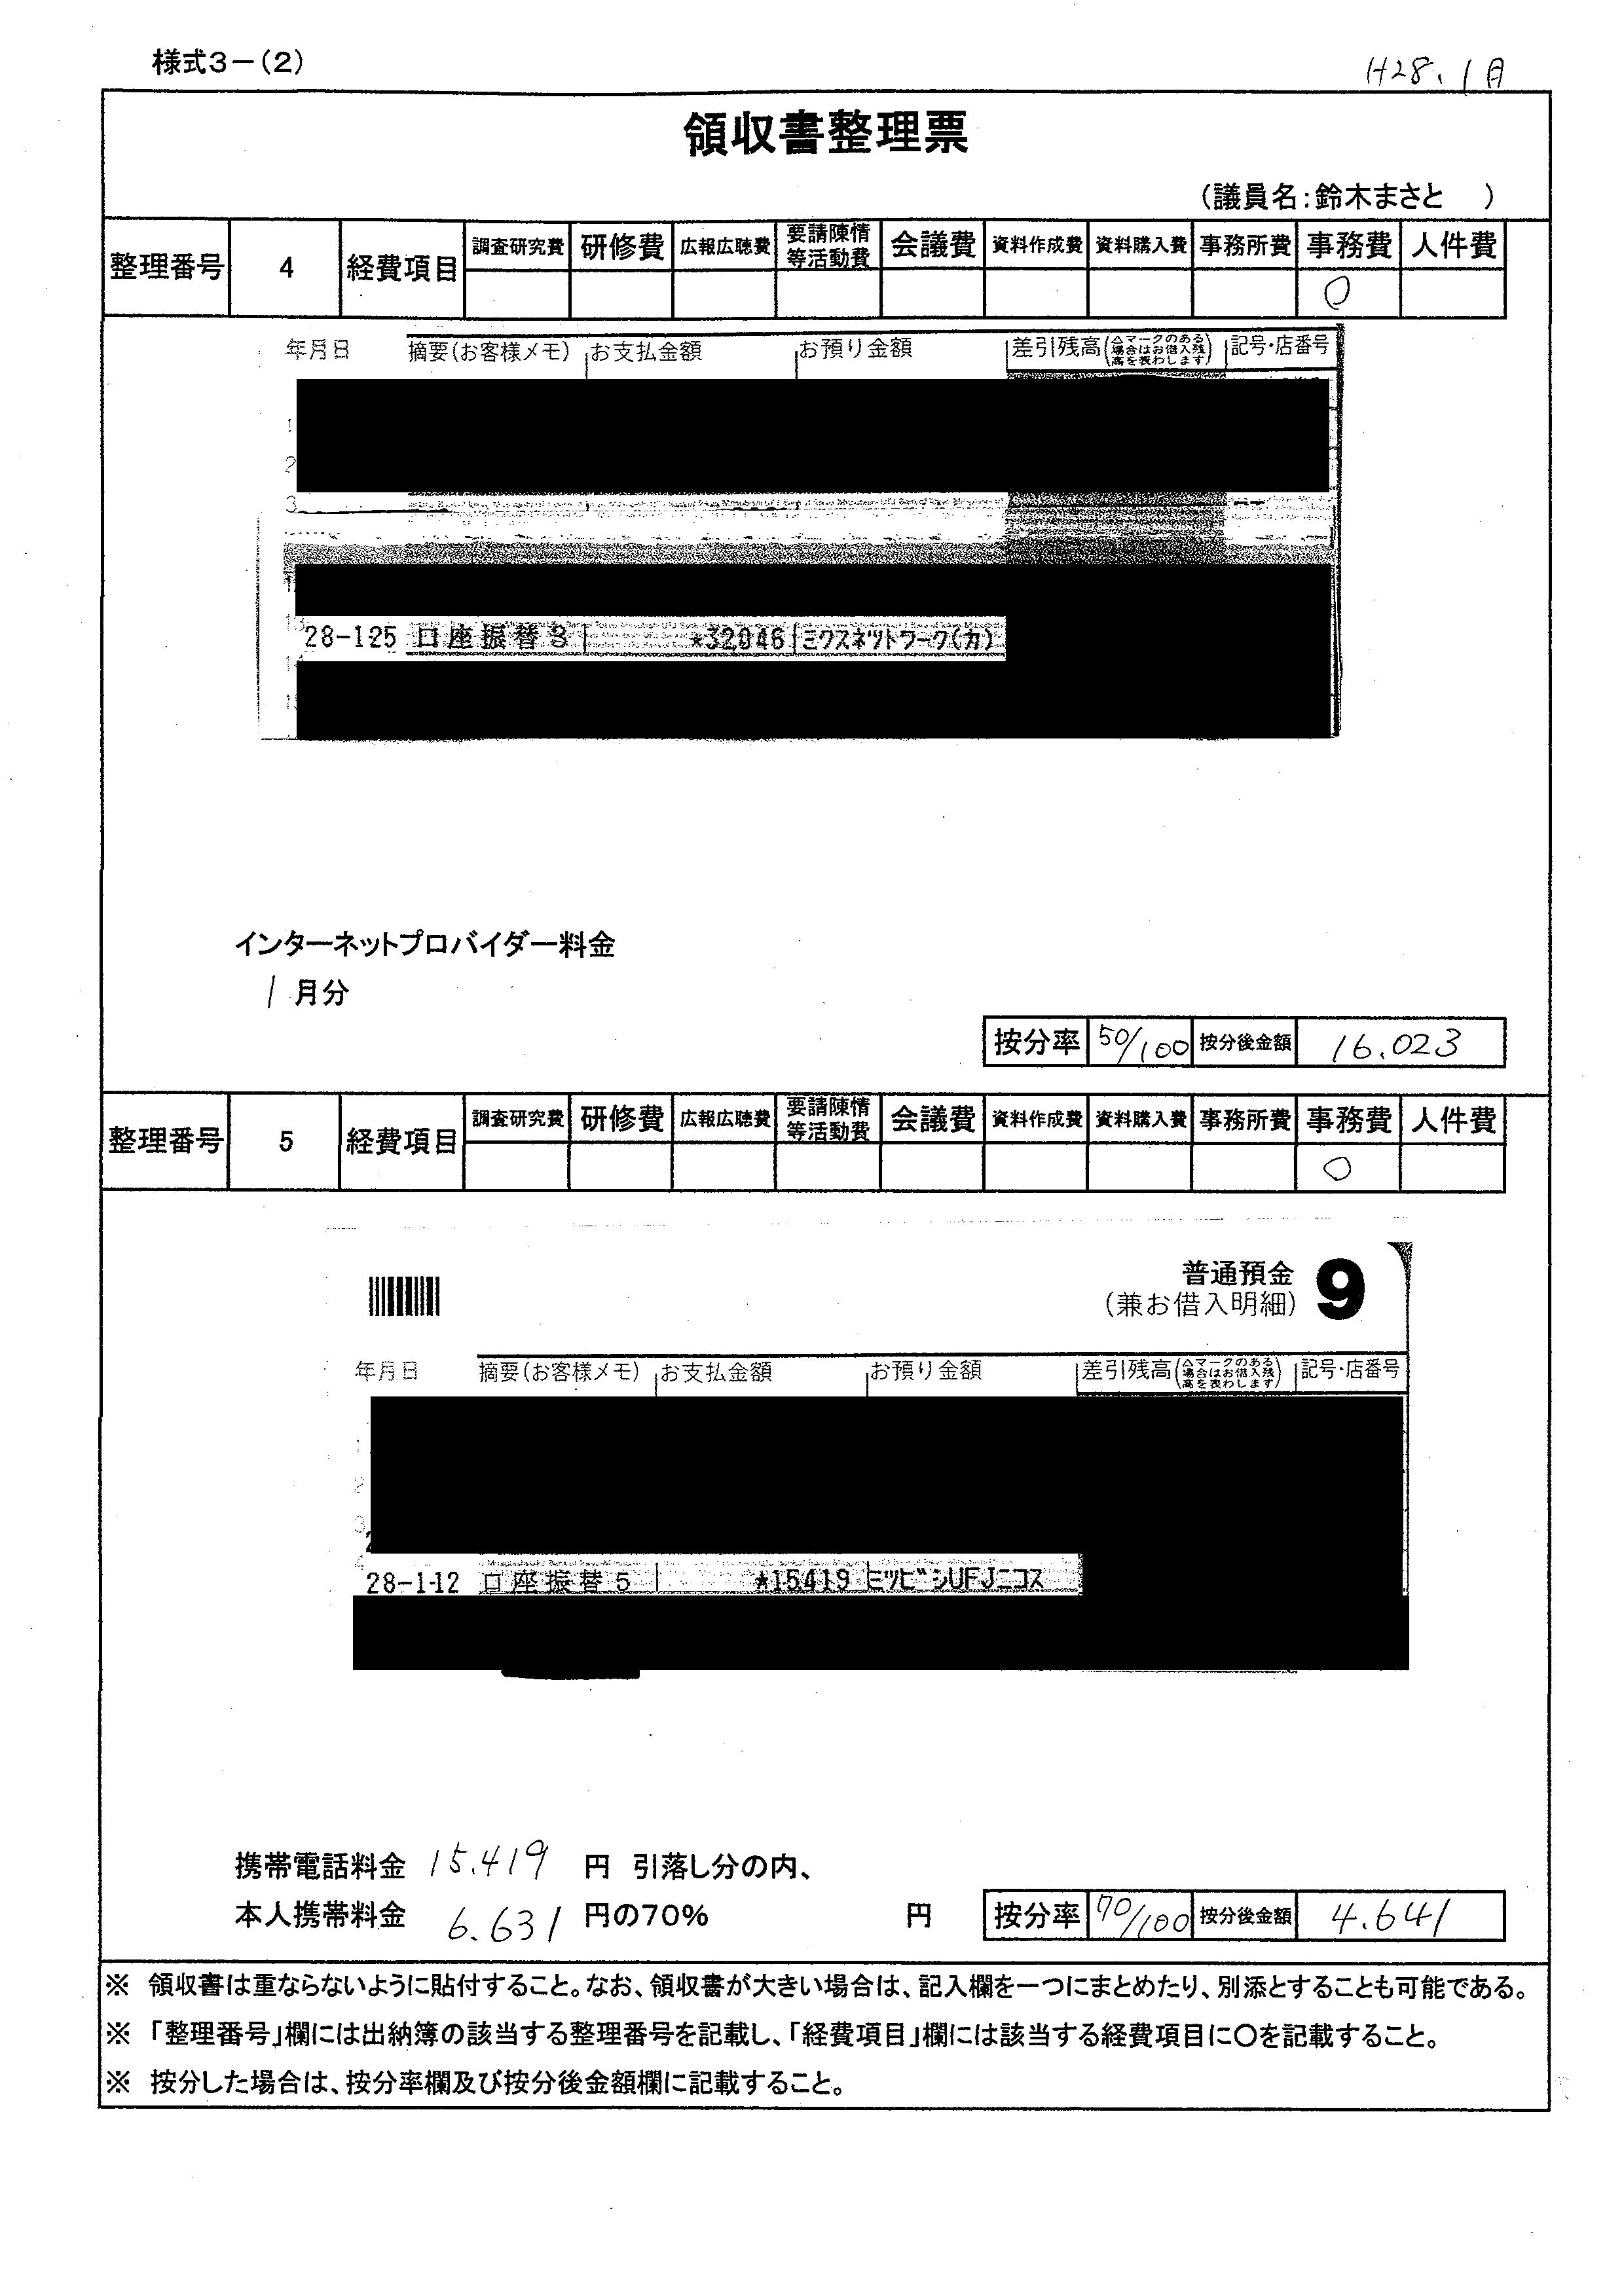 様式3－(2)
H28.1月
領収書整理票
(議員名:鈴木まさと　)
整理番号 4 経費項目 調査研究費 研修費 広報広聴費 要請陳情等活動費 会議費 資料作成費 資料購入費 事務所費 事務費 人件費
○
年月日 摘要(お客様メモ) お支払金額 お預り金額 差引残高(△マークのある場合はお借入残高を表わします) 記号・店番号
1
2
3
28-1-25 口座振替3 *32,046 ミクスネツトワーク(カ)
インターネットプロバイダー料金
1 月分
按分率 50/100 按分後金額 16,023
整理番号 5 経費項目 調査研究費 研修費 広報広聴費 要請陳情等活動費 会議費 資料作成費 資料購入費 事務所費 事務費 人件費
○
普通預金
(兼お借入明細) 9
年月日 摘要(お客様メモ) お支払金額 お預り金額 差引残高(△マークのある場合はお借入残高を表わします) 記号・店番号
1
2
3
28-1-12 口座振替5 *15,419 ミツビシUFJニコス
携帯電話料金 15,419 円 引落し分の内、
本人携帯料金 6,631 円の70% 円 按分率 70/100 按分後金額 4,641
※ 領収書は重ならないように貼付すること。なお、領収書が大きい場合は、記入欄を一つにまとめたり、別添とすることも可能である。
※ 「整理番号」欄には出納簿の該当する整理番号を記載し、「経費項目」欄には該当する経費項目に○を記載すること。
※ 按分した場合は、按分率欄及び按分後金額欄に記載すること。